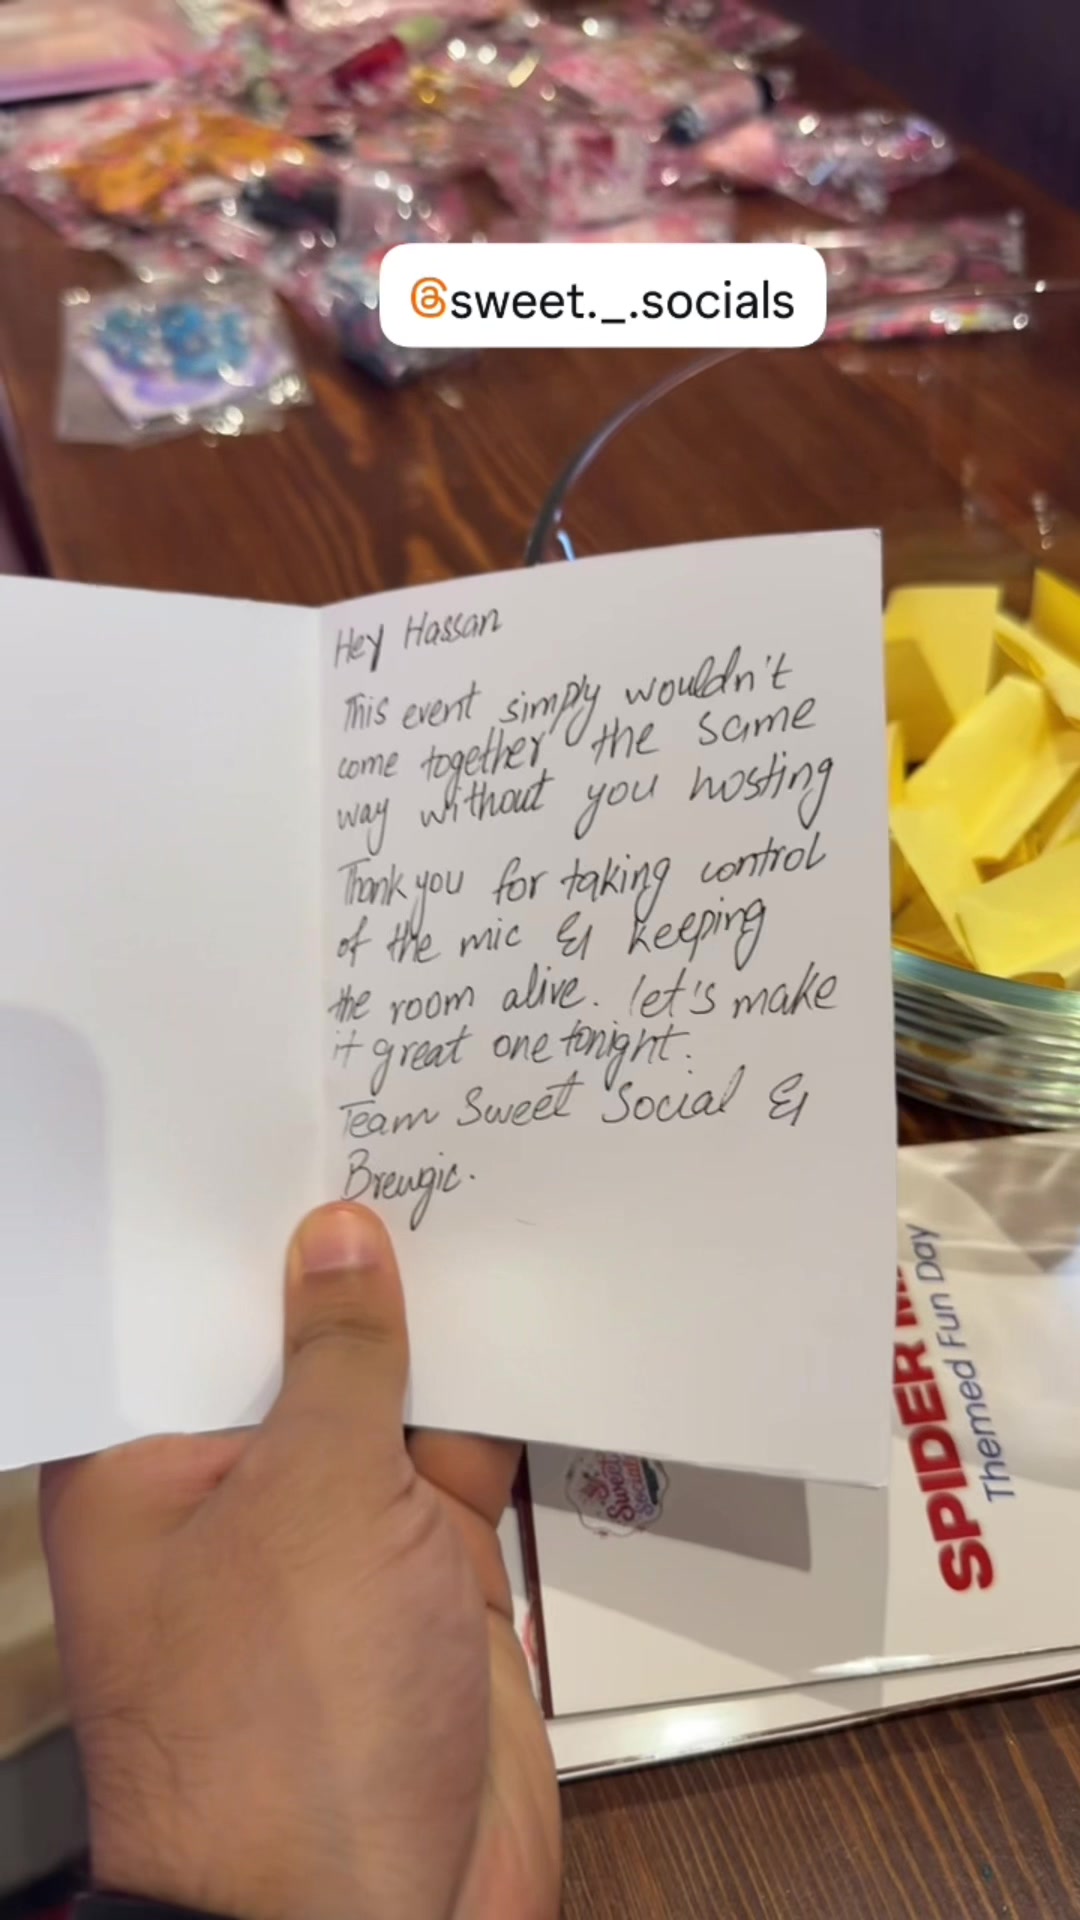 @sweet._.socials
Hey Hassan
This event simply wouldn't
come together the same
way without you hosting
Thank you for taking control
of the mic & keeping
the room alive. let's make
it great one tonight.
Team Sweet Social &
Brewgic.
SPIDER
Themed Fun Day
Sweet
Socials